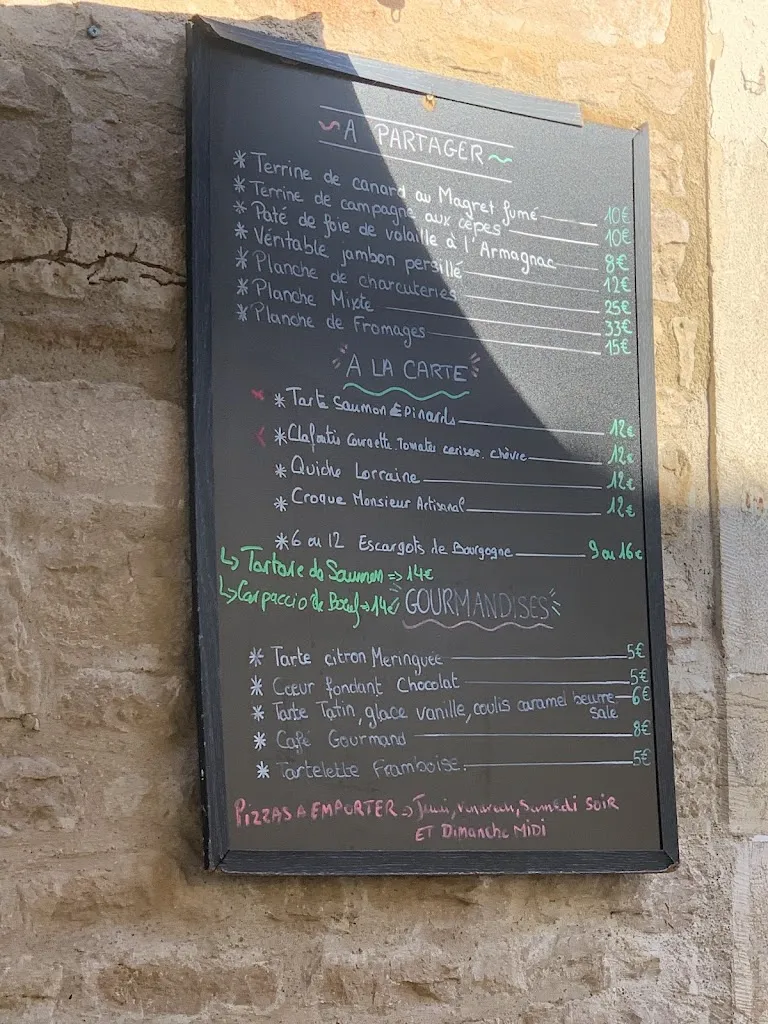 A PARTAGER
* Terrine de canard au Magret fumé 10€
* Terrine de campagne aux cèpes 10€
* Paté de foie de volaille à l'Armagnac 8€
* Véritable jambon persillé 12€
* Planche de charcuteries 25€
* Planche Mixte 33€
* Planche de Fromages 15€
A LA CARTE
* Tarte Saumon Épinards 12€
* Clafoutis Courgette. Tomates cerises. chèvre 12€
* Quiche Lorraine 12€
* Croque Monsieur Artisanal 12€
* 6 ou 12 Escargots de Bourgogne 9 ou 16€
↳ Tartare de Saumon => 14€
↳ Carpaccio de Boeuf => 14€
GOURMANDISES
* Tarte citron Meringuée 5€
* Cœur fondant Chocolat 5€
* Tarte Tatin, glace vanille, coulis caramel beurre 6€
salé
* Café Gourmand 8€
* Tartelette Framboise. 5€
PIZZAS A EMPORTER => Jeudi, Vendredi, Samedi SOIR
ET Dimanche MiDi